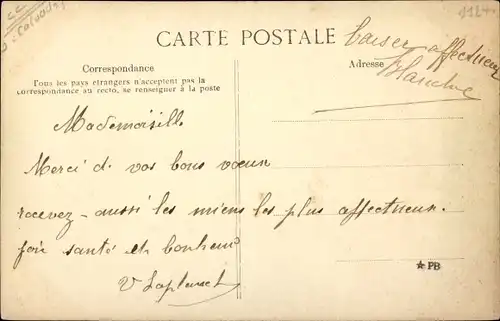 (Calvados)
CARTE POSTALE
Baiser affectueux
Blanche
Correspondance
Adresse
Tous les pays étrangers n'acceptent pas la
correspondance au recto, se renseigner à la poste
Mademoiselle
Merci de vos bons vœux
recevez - aussi les miens les plus affectueux.
joie santé et bonheur
V Laplanche
★ PB